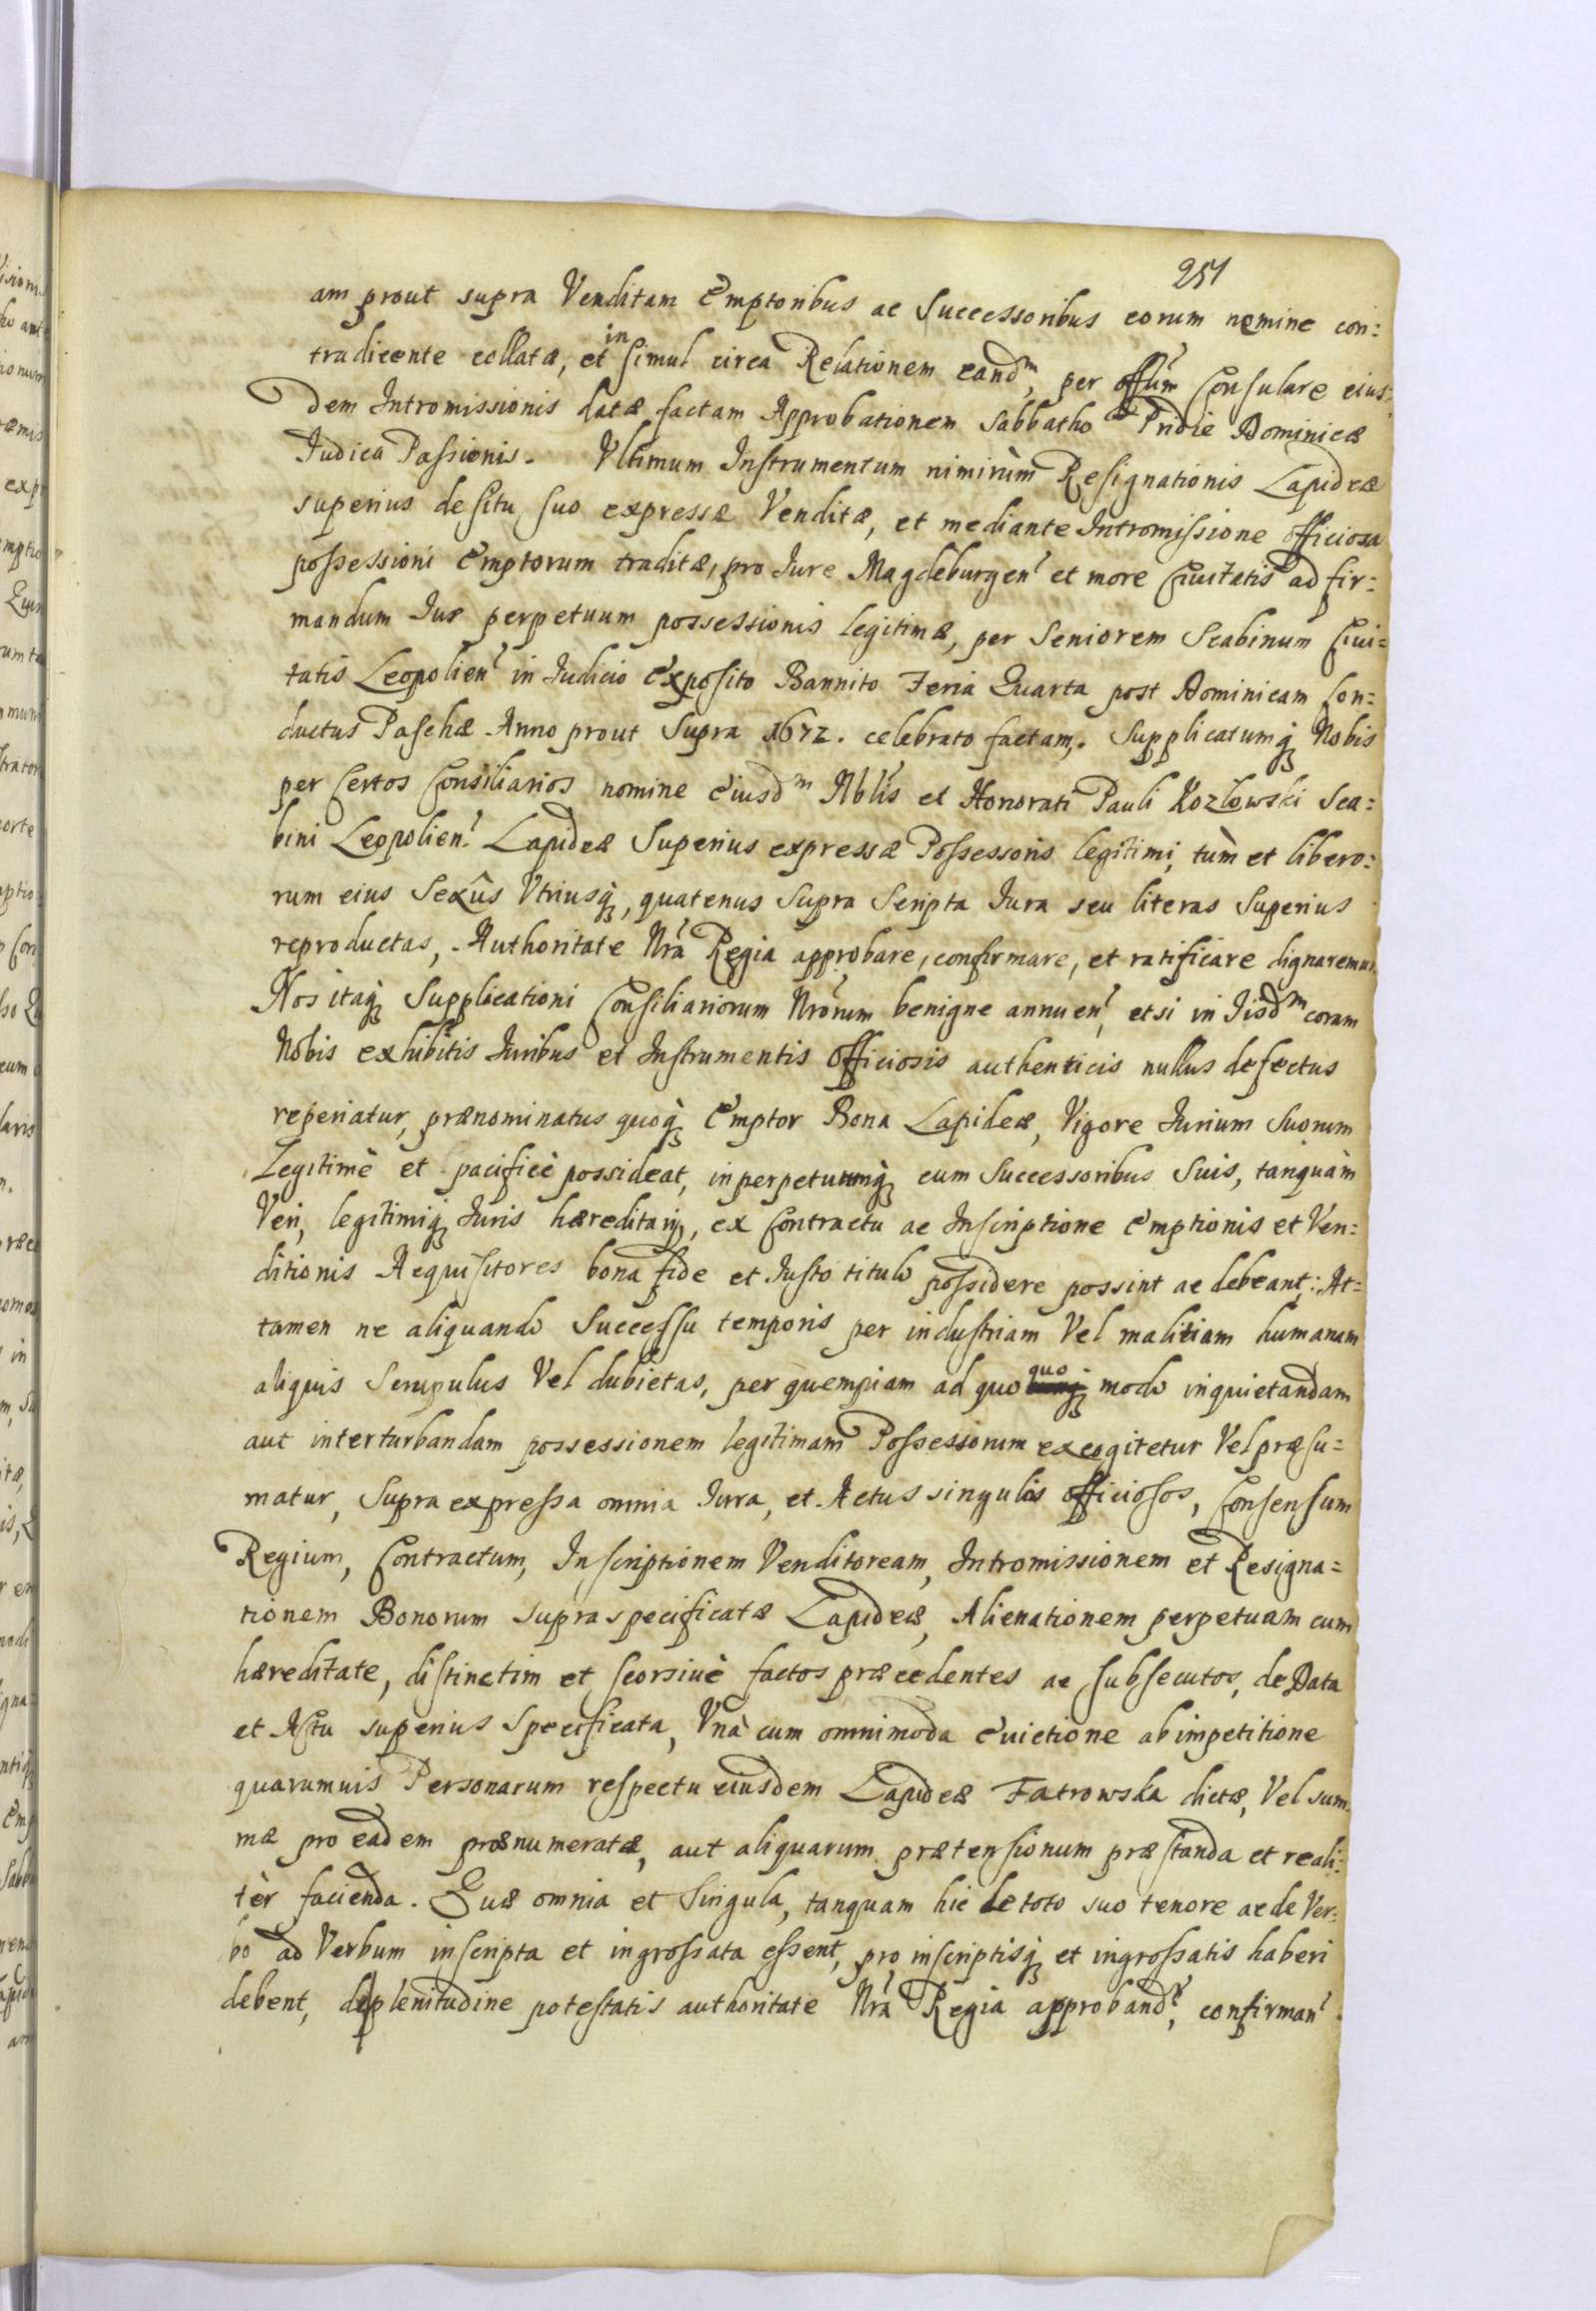 251
am prout supra Venditam Emptoribus ac Successoribus eorum nemine con:
tradicente collatæ, et in simul circa Relationem eandm, per offum Consulare eius:
dem Intromissionis datæ factam Approbationem Sabbatho Pridie Dominicæ
Judica Passionis. Ultimum Instrumentum nimirùm Resignationis Lapideæ
superius de situ suo expressæ Venditæ, et mediante Intromissione officiosa
possessioni Emptorum traditæ, pro Jure Magdeburgen et more Ciuitatis ad fir:
mandum Ius perpetuum possessionis legitimæ, per Seniorem Scabinum Ciui=
tatis Leopolien in Judicio Exposito Bannito Feria Quarta post Dominicam Con:
ductus Paschæ Anno prout Supra 1672. celebrato factam. Supplicatumq Nobis
per Certos Consiliarios nomine Eiusdm Nblis et Honorati Pauli Kozlowski Sca:
bini Leopolien. Lapideæ Superius expressæ Possessoris legitimi, tùm et libero:
rum eius Sexûs Vtriusq, quatenus Supra Scripta Iura seu literas Superius
reproductas, Authoritate Nra Regia approbare, confirmare, et ratificare dignaremur.
Nos itaq Supplicationi Consiliariorum Nrorum benigne annuen, etsi in Iisdm coram
Nobis exhibitis Iuribus et Instrumentis Officiosis authenticis nullus defectus
reperiatur, prænominatus quoq Emptor Bona Lapideæ, Vigore Iurium Suorum
Legitimè et pacificè possideat, in perpetuumq cum Successoribus Suis, tanquàm
Veri, legitimiq Iuris hæreditarij, ex Contractu ac Inscriptione Emptionis et Ven:
ditionis Acquisitores bona fide et Iusto titulo possidere possint ac debeant: At=
tamen ne aliquando Successu temporis per industriam Vel malitiam humanam
aliquis Scrupulus Vel dubietas, per quempiam ad quo quo modo inquietandam
aut interturbandam possessionem legitimam Possessorum excogitetur Vel præsu=
matur, Supra expressa omnia Iura, et Actus singulos officiosos, Consensum
Regium, Contractum, Inscriptionem Venditoream, Intromissionem et Resigna=
tionem Bonorum supra specificatæ Lapideæ, Alienationem perpetuam cum
hæreditate, distinctim et seorsivè factos præcedentes ac subsecutos, de Data
et Actu superius Specificata, Vnà cum omnimoda Euictione ab impetitione
quarumuis Personarum respectu eiusdem Lapideæ Fatrowska dictæ, Vel sum
mæ pro eadem prænumeratæ, aut aliquarum prætensionum præstanda et reali:
tèr facienda. Quæ omnia et Singula, tanquam hic de toto suo tenore ac de Ver:
bo ad Verbum inscripta et ingrossata essent, pro inscriptisq et ingrossatis haberi
debent, de plenitudine potestatis authoritate Nra Regia approband, confirman.